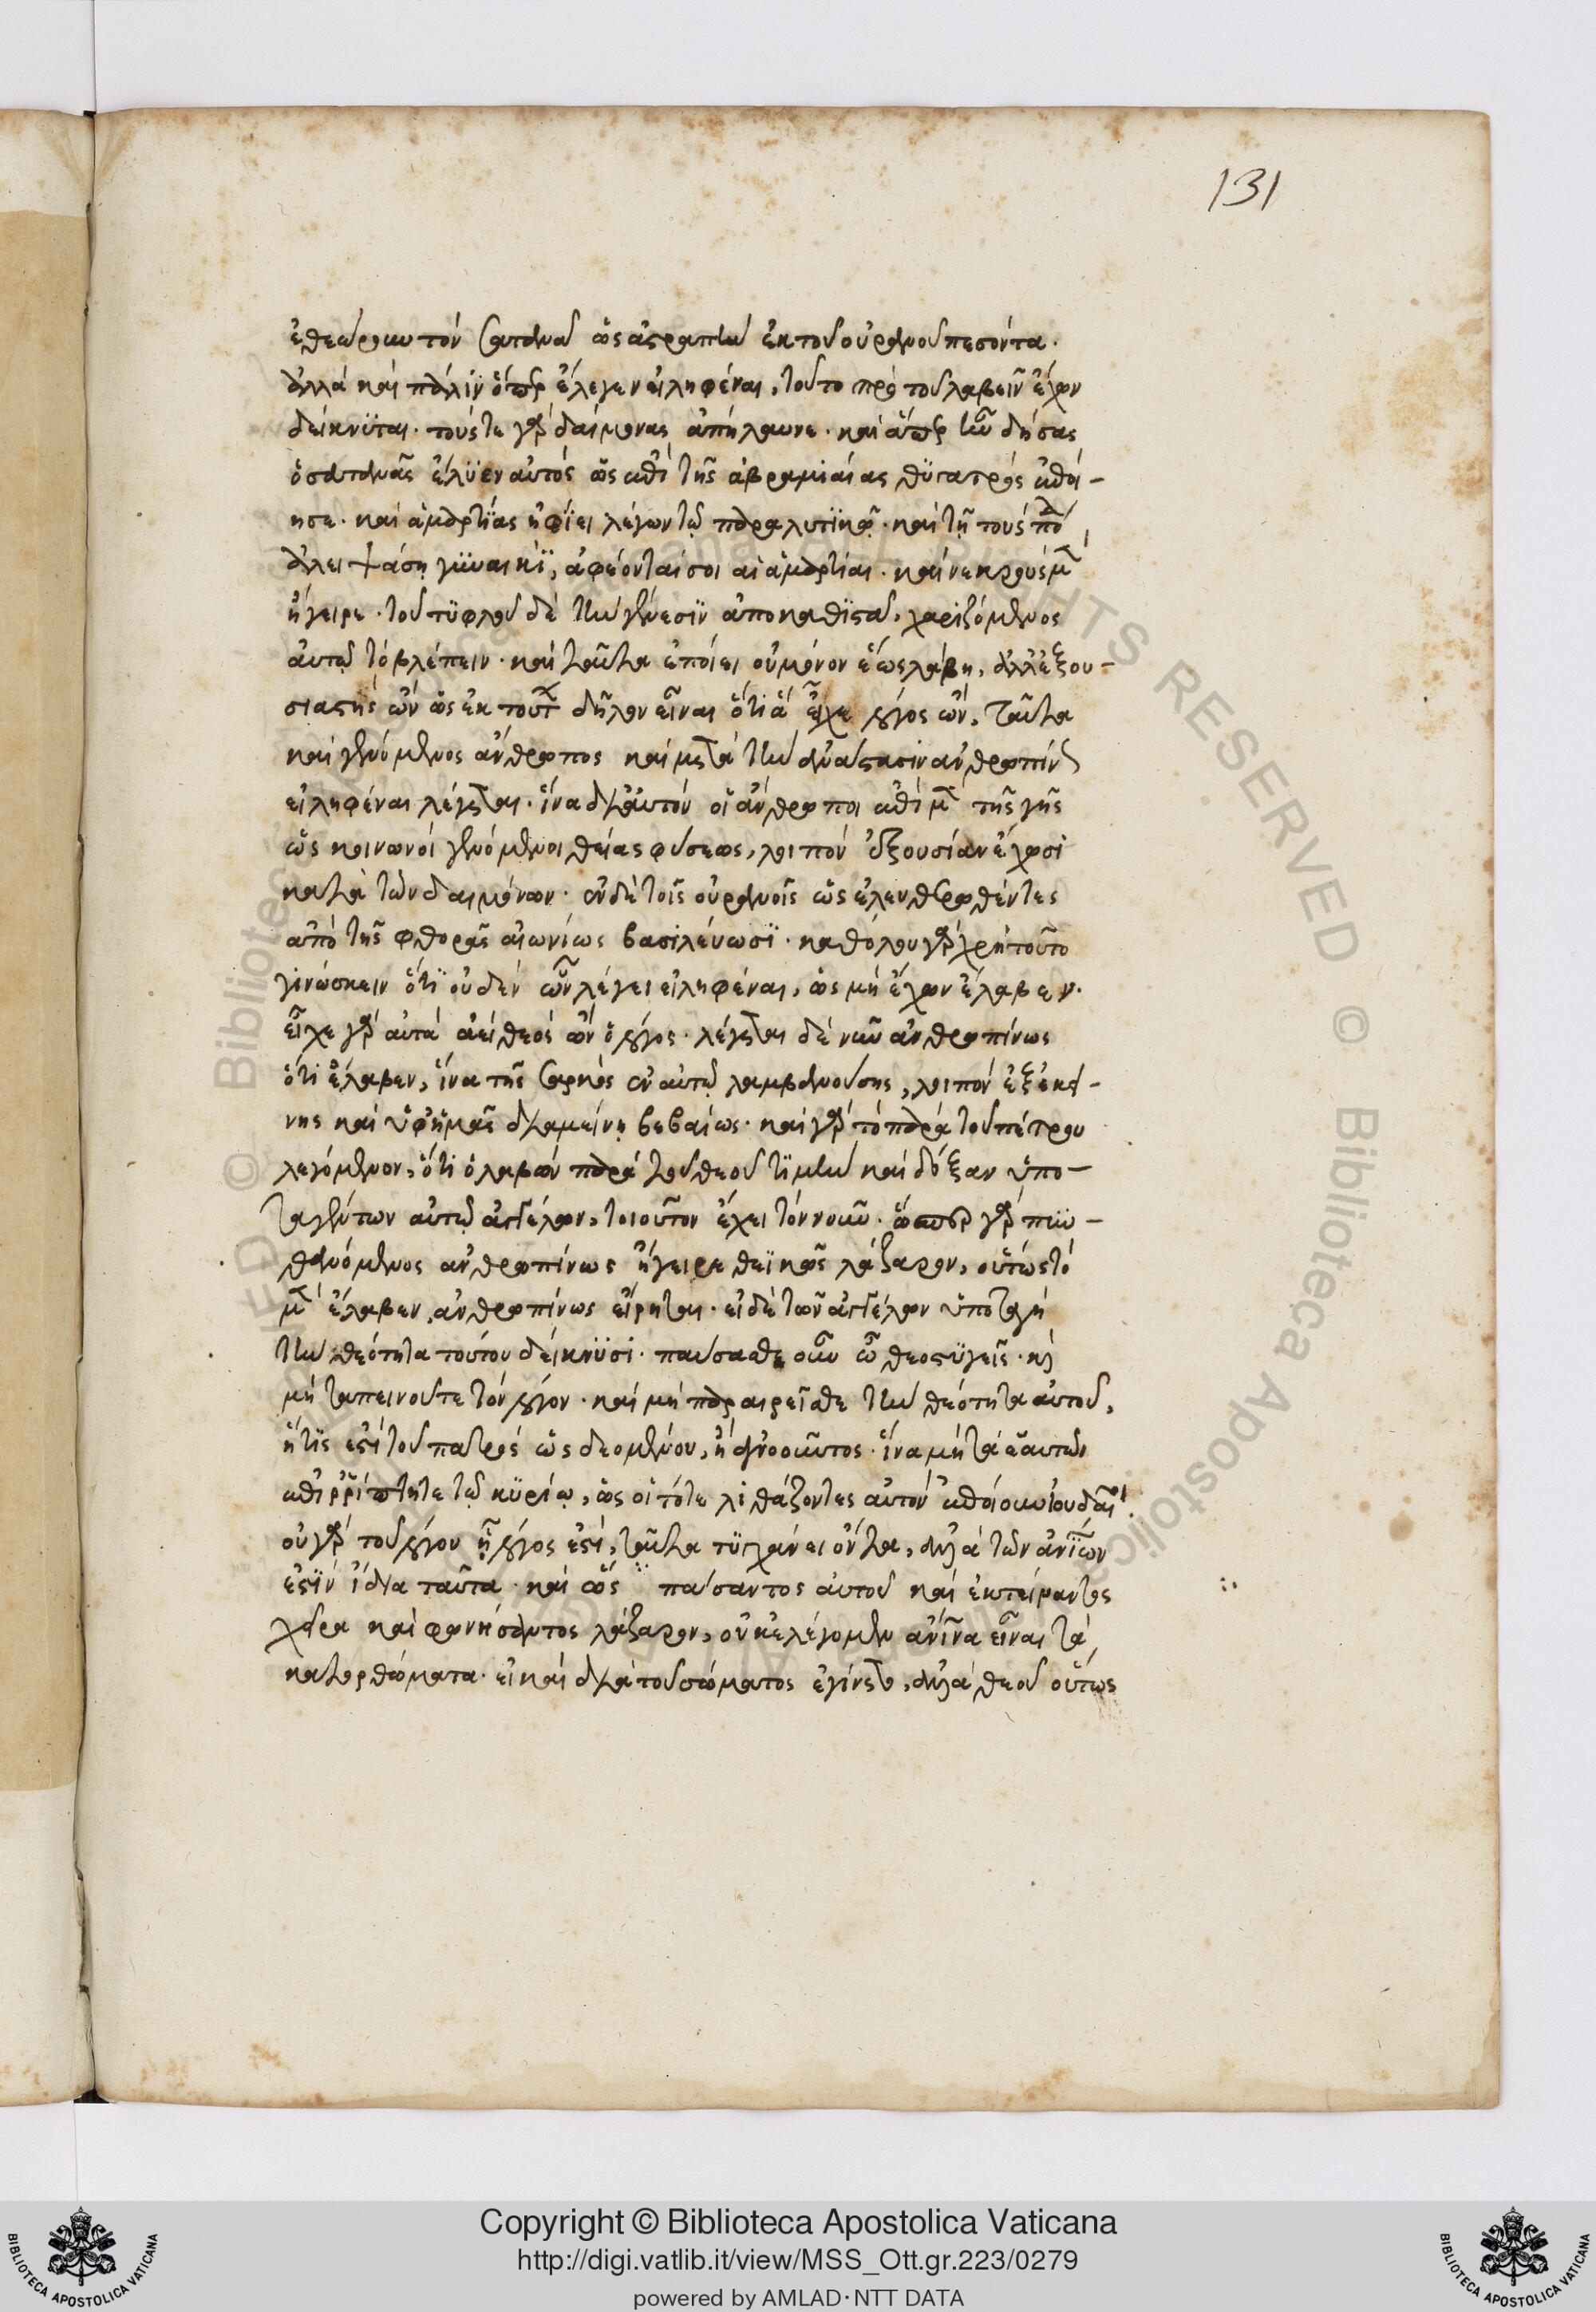 131
ἐθεώρουν τὸν σατανᾶν ὡς ἀστραπὴν ἐκ τοῦ οὐρανοῦ πεσόντα·
ἀλλὰ καὶ πάλιν ὅπερ ἔλεγεν εἰληφέναι, τοῦτο πρὸ τοῦ λαβεῖν ἔχων
δείκνυται· τούς τε γὰρ δαίμονας ἀπήλαυνε· καὶ ἅπερ ἦν δήσας
ὁ σατανᾶς ἔλυεν αὐτὸς ὡς ἐπὶ τῆς ἀβραμιαίας θυγατρὸς ἐποί-
ησε· καὶ ἁμαρτίας ἠφίει λέγων τῷ παραλυτικῷ· καὶ τῇ τοὺς πόδας
ἀλειψάσῃ γυναικί, ἀφέονταί σοι αἱ ἁμαρτίαι· καὶ νεκροὺς μὲν
ἤγειρε· τοῦ τυφλοῦ δὲ τὴν γένεσιν ἀποκαθιστᾷ, χαριζόμενος
αὐτῷ τὸ βλέπειν· καὶ ταῦτα ἐποίει οὐ μόνον ἕως λάβῃ, ἀλλ' ἐξου-
σιαστὴς ὢν ὡς ἐκ τούτου δῆλον εἶναι ὅτι ἃ εἶχε λόγος ὤν, ταῦτα
καὶ γενόμενος ἄνθρωπος καὶ μετὰ τὴν ἀνάστασιν ἀνθρωπίνως
εἰληφέναι λέγεται· ἵνα δι' αὐτὸν οἱ ἄνθρωποι ἐπὶ μὲν τῆς γῆς
ὡς κοινωνοὶ γενόμενοι θείας φύσεως, λοιπὸν ἐξουσίαν ἔχωσι
κατὰ τῶν δαιμόνων· ἐν δὲ τοῖς οὐρανοῖς ὡς ἐλευθερωθέντες
ἀπὸ τῆς φθορᾶς αἰωνίως βασιλεύωσι· καθόλου γὰρ χρὴ τοῦτο
γινώσκειν ὅτι οὐδὲν ὧν λέγει εἰληφέναι, ὡς μὴ ἔχων ἔλαβεν·
εἶχε γὰρ αὐτὰ ἀεὶ θεὸς ὢν ὁ λόγος· λέγεται δὲ νῦν ἀνθρωπίνως
ὅτι ἔλαβεν, ἵνα τῆς σαρκὸς ἐν αὐτῷ λαμβανούσης, λοιπὸν ἐξ ἐκεί-
νης καὶ ἐφ' ἡμᾶς διαμείνῃ βεβαίως· καὶ γὰρ τὸ παρὰ τοῦ πέτρου
λεγόμενον, ὅτι ὁ λαβὼν παρὰ τοῦ θεοῦ τιμὴν καὶ δόξαν ὑπο-
ταγέντων αὐτῷ ἀγγέλων, τοιοῦτον ἔχει τὸν νοῦν· ὥσπερ γὰρ πυν-
θανόμενος ἀνθρωπίνως ἤγειρε θεϊκῶς λάζαρον, οὕτως τὸ
μὲν ἔλαβεν, ἀνθρωπίνως εἴρηται· εἰ δὲ τῶν ἀγγέλων ὑποταγὴ
τὴν θεότητα τούτου δείκνυσι· παύσασθε οὖν ὦ θεοστυγεῖς· καὶ
μὴ ταπεινοῦτε τὸν λόγον· καὶ μὴ παραιρεῖσθε τὴν θεότητα αὐτοῦ,
ἥτις ἐστὶ τοῦ πατρὸς ὡς δεομένου, ἢ ἀγνοοῦντος· ἵνα μὴ τὰ ἑαυτῶν
ἐπιρρίπτητε τῷ κυρίῳ, ὡς οἱ τότε λιθάζοντες αὐτὸν ἐποίουν ἰουδαῖοι·
οὐ γὰρ τοῦ λόγου ᾗ λόγος ἐστί, ταῦτα τυγχάνει ὄντα, ἀλλὰ τῶν ἀνθρώπων
ἐστὶν ἴδια ταῦτα· καὶ ὡς πτύσαντος αὐτοῦ καὶ ἐκτείναντος
χεῖρα καὶ φωνήσαντος λάζαρον, οὐκ ἐλέγομεν ἀνθρώπινα εἶναι τὰ
κατορθώματα· εἰ καὶ διὰ τοῦ σώματος ἐγίνετο, ἀλλὰ θεοῦ οὕτως
Copyright © Biblioteca Apostolica Vaticana
http://digi.vatlib.it/view/MSS_Ott.gr.223/0279
powered by AMLAD·NTT DATA
BIBLIOTECA APOSTOLICA VATICANA
BIBLIOTECA APOSTOLICA VATICANA